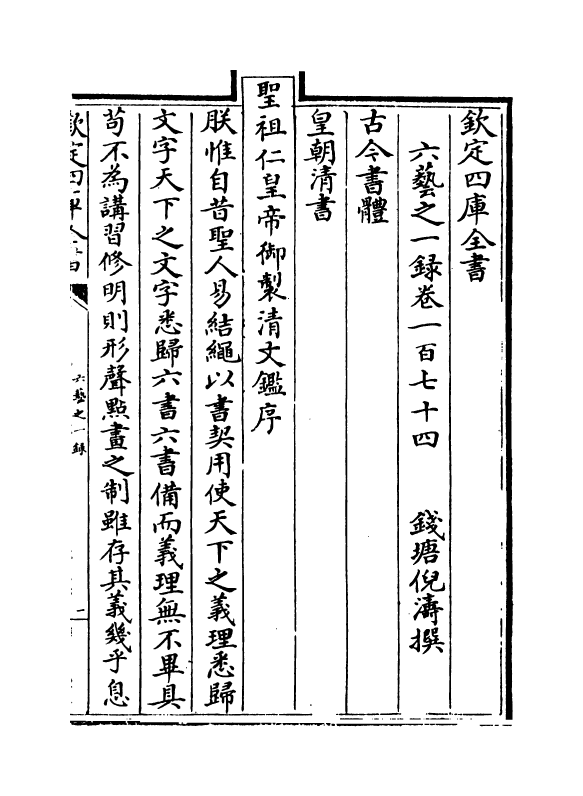 欽定四庫全書
六藝之一録卷一百七十四　錢塘倪濤撰
古今書體
皇朝清書
聖祖仁皇帝御製清文鑑序
朕惟自昔聖人易結繩以書契用使天下之義理悉歸
文字天下之文字悉歸六書六書備而義理無不畢具
苟不為講習修明則形聲點畫之制雖存其義幾乎息
欽定四庫全書
六藝之一録